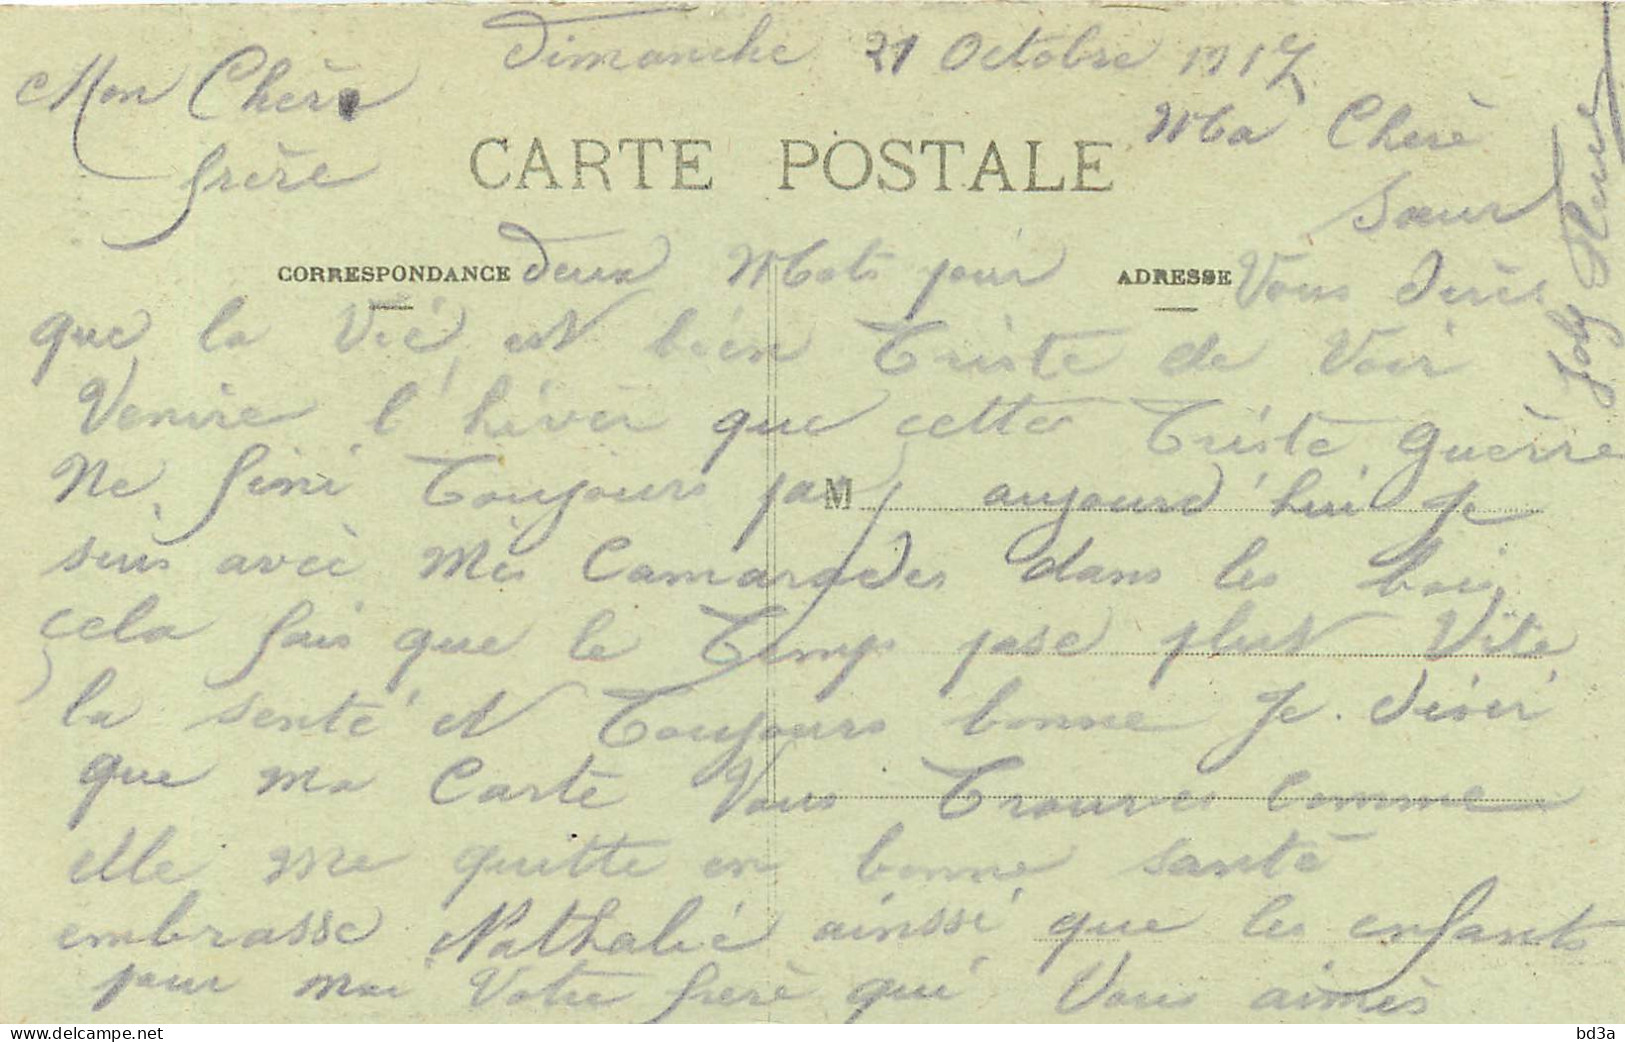 Dimanche 21 Octobre 1917
Mon Chère
frère
Ma Cherè
Sœur
CARTE POSTALE
CORRESPONDANCE
ADRESSE
deux Mots pour Vous direˋs
que la Vié est bien Triste de Voir
Venire l'hivèr que cette Triste guèrre
Ne fini Toujours pas aujourd'hui Je
M
suis avèc Mès Camarades dans les bois
cela fais que le Temps pase plust Vite
la senté et Toujours bonne Je désir
que ma Carte Vous Trouves Comme
elle me quitte en bonne santé
embrasse Nathalié ainssi que les enfants
pour moi Votre frerè qui Vous aimès
Joly
bd3a